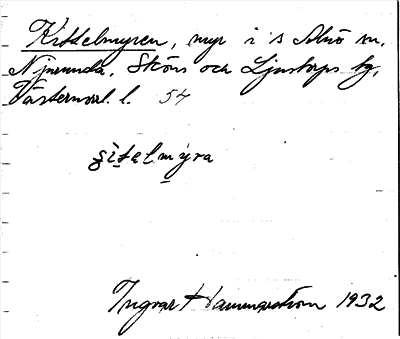 Kittelmyren, myr i s Alnö sn,
Njurunda, Sköns och Ljustorps tg,
Västernorrl. l. 54
s̨ìtelmýra
Ingvar Hammarström 1932